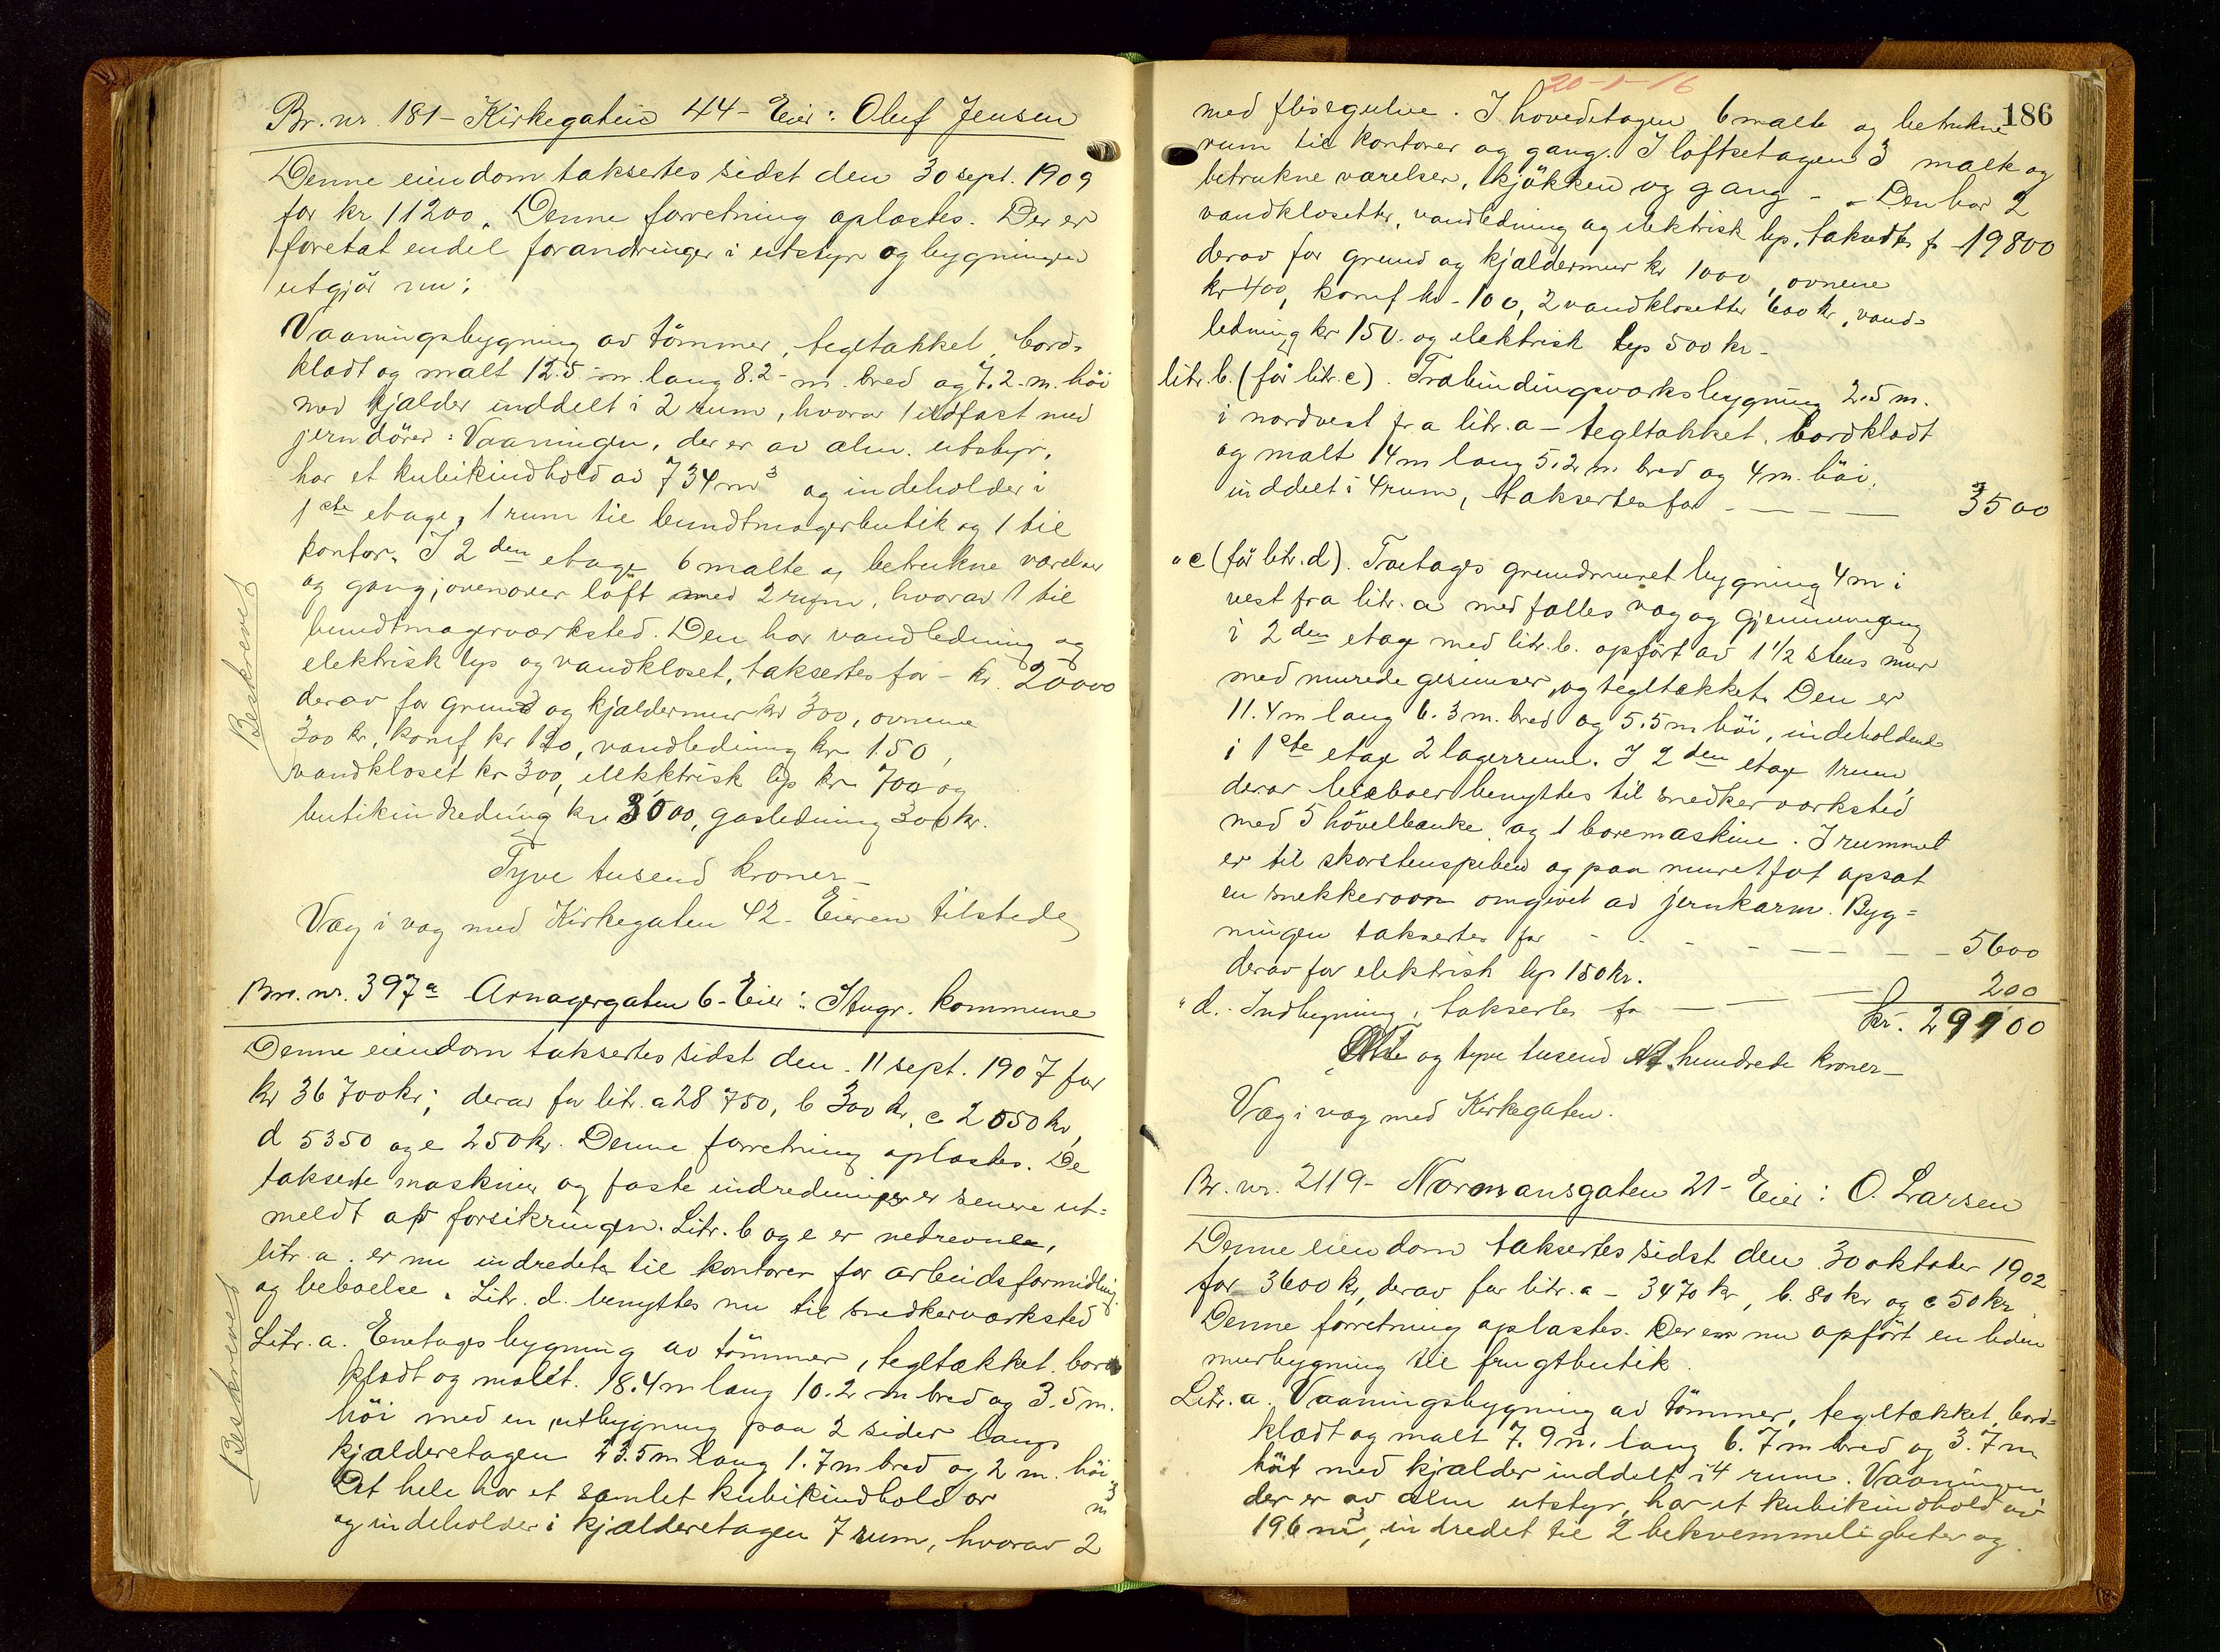 Br. nr. 181 - Kirkegaten 44 - Eier: Oluf Jensen
Denne eiendom taksertes sidst den 30 sept. 1909
for kr 11200. Denne forretning oplæstes. Der er
foretat endel forandringer i utstyr og bygningen
utgjör nu:
Vaaningsbygning av tömmer, tegltækket, bord-
klædt og malt 12.5 m. lang 8.2 - m. bred og 7.2 - m. höi
med kjælder inddelt i 2 rum, hvorav 1 ildfast med
jerndörer: Vaaningen, der er av alm. utstyr,
har et kubikindhold av 734 m³ og indeholder i
1ste etage, 1 rum til bundtmagerbutik og 1 til
kontor. I 2den etage 6 malte og betrukne værelser
og gang; ovenover loft med 2 rum, hvorav 1 til
bundtmagerværksted. Den har vandledning og
elektrisk lys og vandkloset, taksertes for - kr. 20000
derav for grund og kjældermur kr 300, ovnene
300 kr, komf kr 120, vandledning kr. 150,
vandkloset kr 300, elekktrisk lys kr 700 og
butikindredning kr 3000, gasledning 300 kr.
Tyve tusend kroner -
Væg i væg med Kirkegaten 42 - Eieren tilstede
Beskrevet
Br. nr. 397a Arnagergaten 6 - Eier: Stvgr. kommune
Denne eiendom taksertes sidst den 11 sept. 1907 for
kr 36700 kr; derav for litr. a 28750, b 300 kr, c 2050 kr,
d 5350 og e 250 kr. Denne forretning oplæstes. De
takserte maskiner og faste indredninger er senere ut-
meldt av forsikringen. Litr. b og e er nedrevne,
litr. a. er nu indredet til kontorer for arbeidsformidling
og beboelse. Litr. d. benyttes nu til snedkerværksted
Litr. a. Enetages bygning av tömmer, tegltækket, bord
klædt og malt. 18.4 m lang 10.2 m bred og 3.5 m.
höi med en utbygning paa 2 sider langs
kjælderetagen 23.5 m lang 1.7 m bred og 2 m. höi
Det hele har et samlet kubikindhold av m³
og indeholder i kjælderetagen 7 rum, hvorav 2
Beskrevet
20-1-16
186
med flisegulve. I hovedetagen 6 malte og betrukne
rum til kontorer og gang. I loftsetagen 3 malte og
betrukne værelser, kjökken og gang - - Den har 2
vandklosetter, vandledning og elektrisk lys, taksertes for - 19800
derav for grund og kjældermur kr 1000, ovnene
kr 400, komf kr - 100, 2 vandklosetter 600 kr, vand-
ledning kr 150. og elektrisk lys 500 kr -
litr. b. (för litr. c). Træbindingsværksbygning 2.5 m.
i nordvest fra litr. a - tegltækket, bordklædt
og malt 14 m lang 5.2 m. bred og 4 m. höi,
inddelt i 4 rum, taksertes for - - - - 3500
" c (för litr. d). Toetages grundmuret bygning 4 m i
vest fra litr. a med fælles væg og gjennemgang
i 2den etage med litr. b. opfört av 1 1/2 stens mur
med murede gesimser og tegltækket. Den er
11.4 m lang 6.3 m. bred og 5.5 m höi, indeholdende
i 1ste etage 2 lagerrum. I 2den etage 1 rum,
derav benyttes til snedkerværksted
med 5 hövelbænke og 1 boremaskine. I rummet
er til skorstenspiben og paa muret fot opsat
en snekkerovn omgivet av jernkarm. Byg-
ningen taksertes for - - - - - - - 5600
derav for elektrisk lys 150 kr.
" d. Indhegning, taksertes for - - - 200
kr. 29100
og tyve tusend et hundrede kroner -
Væg i væg med Kirkegaten.
Br. nr. 2119 - Normansgaten 21 - Eier: O. Larsen
Denne eiendom taksertes sidst den 30 oktober 1902
for 3600 kr, derav for litr. a - 3470 kr, b. 80 kr og c 50 kr.
Denne forretning oplæstes. Der er nu opfört en liden
murbygning til frugtbutik.
Litr. a. Vaaningsbygning av tömmer, tegltækket, bord-
klædt og malt 7.9 m. lang 6.7 m bred og 3.7 m
höi med kjælder inddelt i 4 rum. Vaaningen
der er av alm utstyr, har et kubikindhold av
196 m³, indredet til 2 bekvemmeligheter og